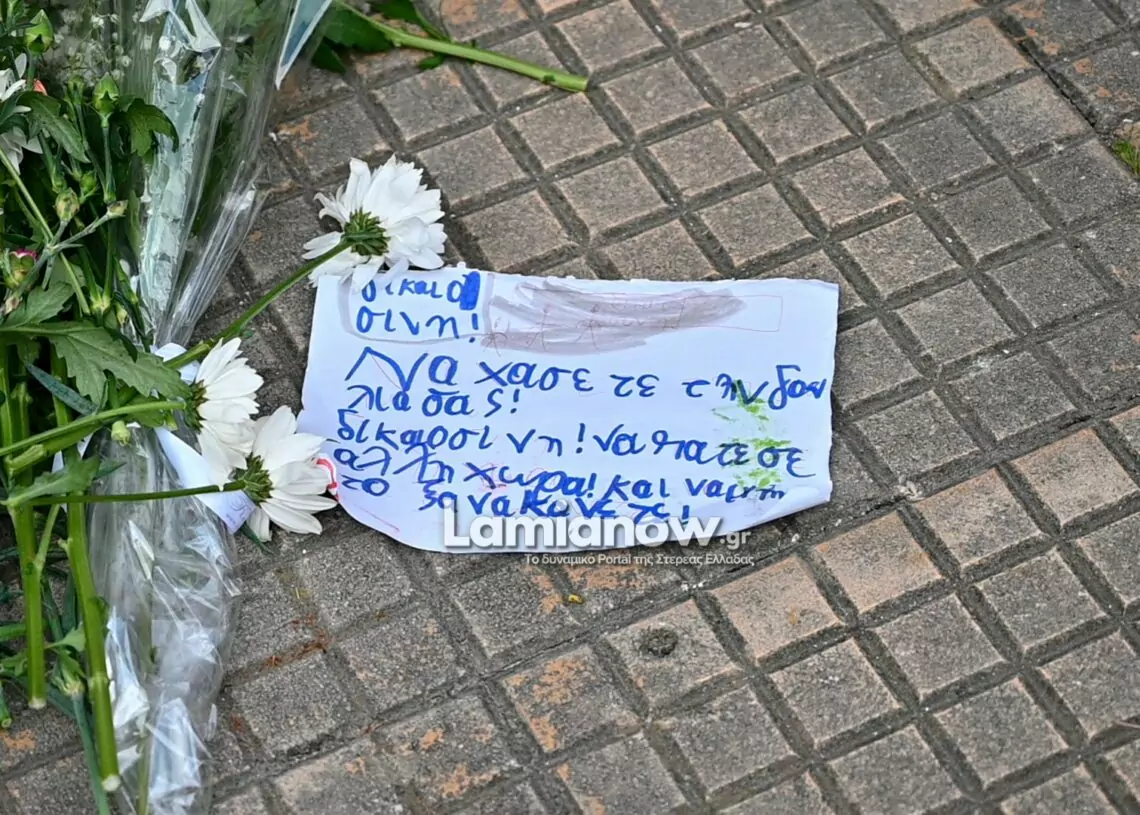 δικαιο
σινη!
Να χασετε την δου
λια σας!
δικαροσινη! να πατε σε
αλλη χωρα! και να μη
το ξανακάνετε!
Lamianow.gr
Το δυναμικό Portal της Στερεας Ελλάδας